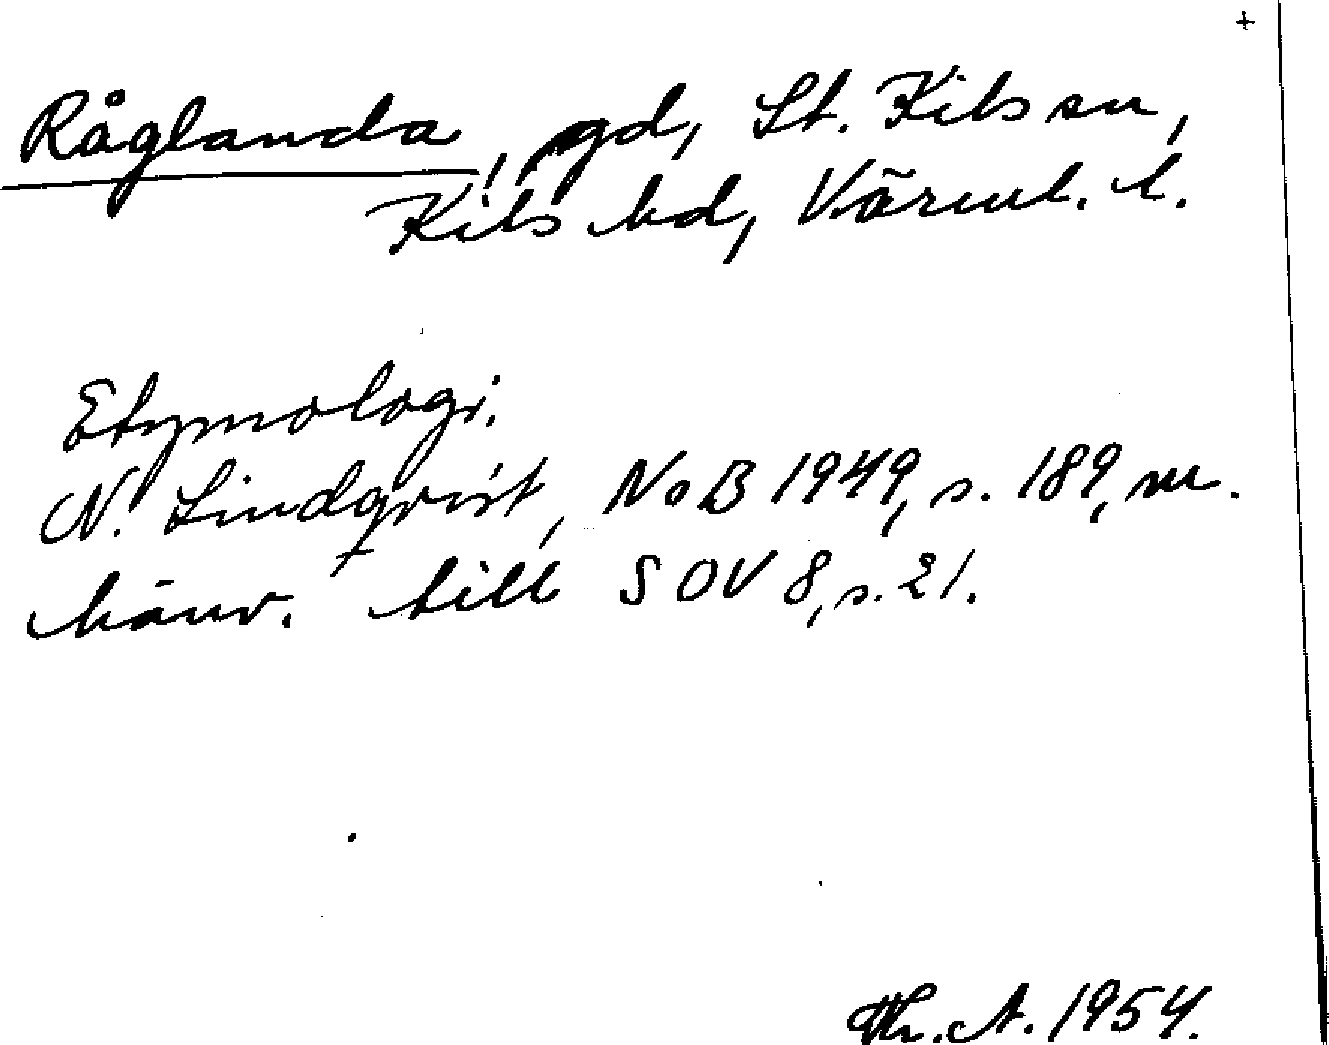 +
Råglanda, gd, St. Kils sn,
Kils hd, Värml. l.
Etymologi.
N. Lindqvist, NoB 1949, s. 189, m.
hänv. till SOV 8, s. 21.
Th. A. 1954.